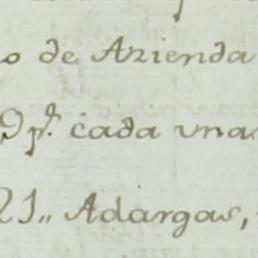 o de Azienda
9 p.s cada una
21,, Adargas,